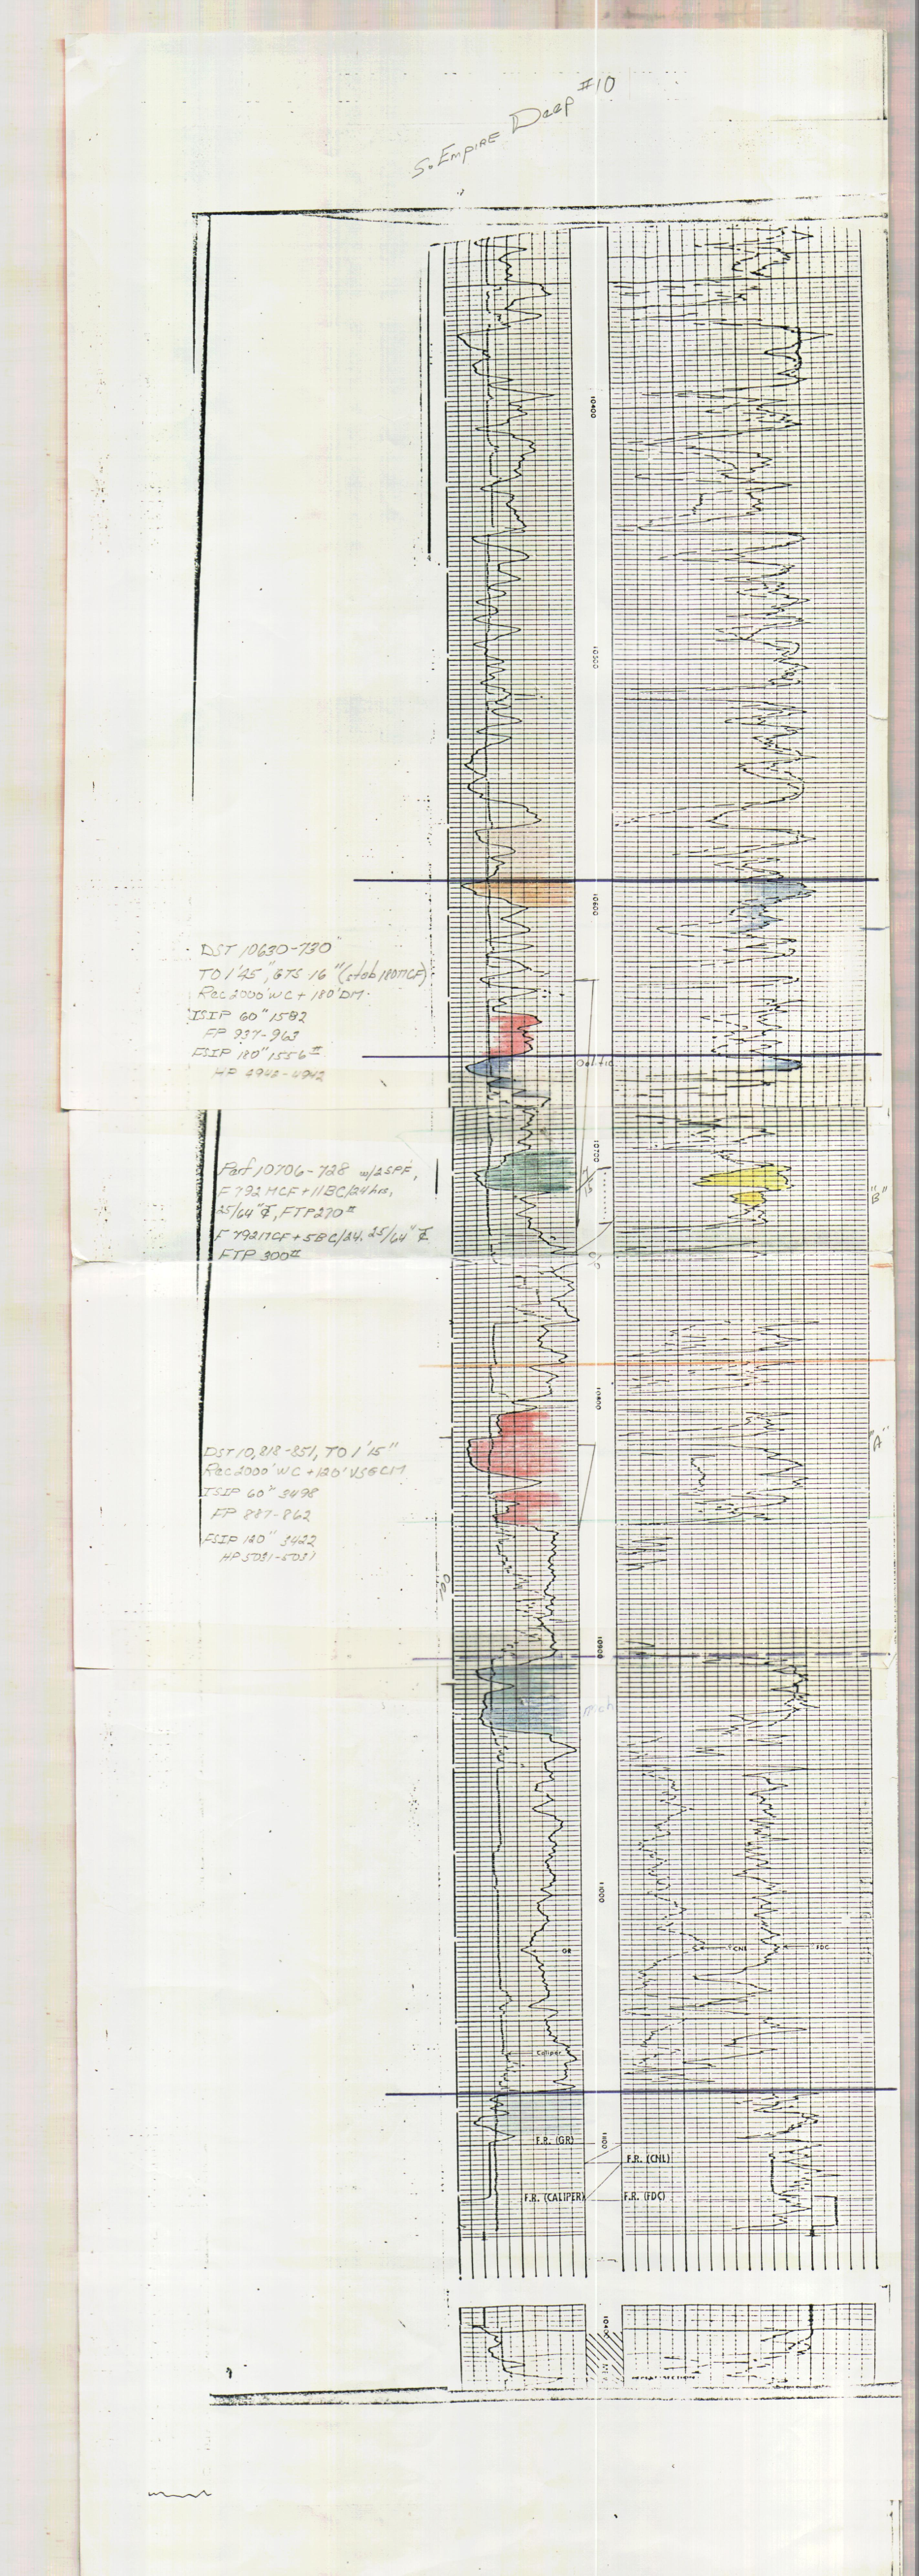 So. EMPIRE Deep #10
10400
10500
10600
DST 10630-730
TO 1'45", GTS 16" (stab 180MCF)
Rec 2000' WC + 180' DM.
ISIP 60" 1582
FP 937-963
FSIP 180" 1556#
HP 4942-4942
Oolitic
10700
Perf 10706-728 w/2SPF,
F 792 MCF + 11BC/24 hrs,
25/64" ₵, FTP 270#
F 792 MCF + 5BC/24, 25/64" ₵
FTP 300#
"B"
10800
"A"
DST 10,818-851, TO 1'15"
Rec 2000' WC + 120' VSGCM
ISIP 60" 3498
FP 887-862
FSIP 120" 3422
HP 5031-5031
10900
11000
GR
CNL
FDC
Caliper
F.R. (GR)
11100
F.R. (CNL)
F.R. (CALIPER)
F.R. (FDC)
10400
REPEAT SECTION